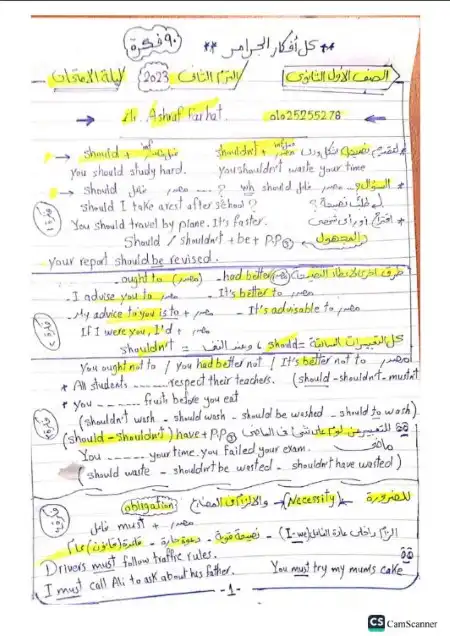 ** كل أفكار الجرامر **
٩٠ فكرة
الصف الأول الثانوى
الترم الثانى 2023
ليلة الامتحان
Mr. Ashraf Farhat. 01025255278
should + inf مصدر
shouldn't + inf مصدر
You should study hard. You shouldn't waste your time
should فاعل مصدر ...? wh should فاعل مصدر ...? السؤال
Should I take a rest after school?
You should travel by plane. It's faster.
Should / shouldn't + be + P.P المجهول
your report should be revised.
ought to (مصدر) - had better (مصدر)
- I advise you to مصدر - It's better to مصدر
- My advice to you is to + مصدر - It's advisable to مصدر
If I were you, I'd + مصدر
كل التعبيرات السابقة = should وعند النفى = shouldn't
You ought not to / you had better not / It's better not to مصدر
* All students ....... respect their teachers. (should - shouldn't - mustn't
* You ....... fruit before you eat
(shouldn't wash - should wash - should be washed - should to wash)
(should - shouldn't) have + P.P
You ....... your time. you failed your exam.
(should waste - shouldn't be wasted - shouldn't have wasted)
للضرورة (Necessity) obligation
فاعل must + مصدر
(I - we)
Drivers must follow traffic rules.
I must call Ali to ask about his father. You must try my mum's cake
-1-
CS CamScanner